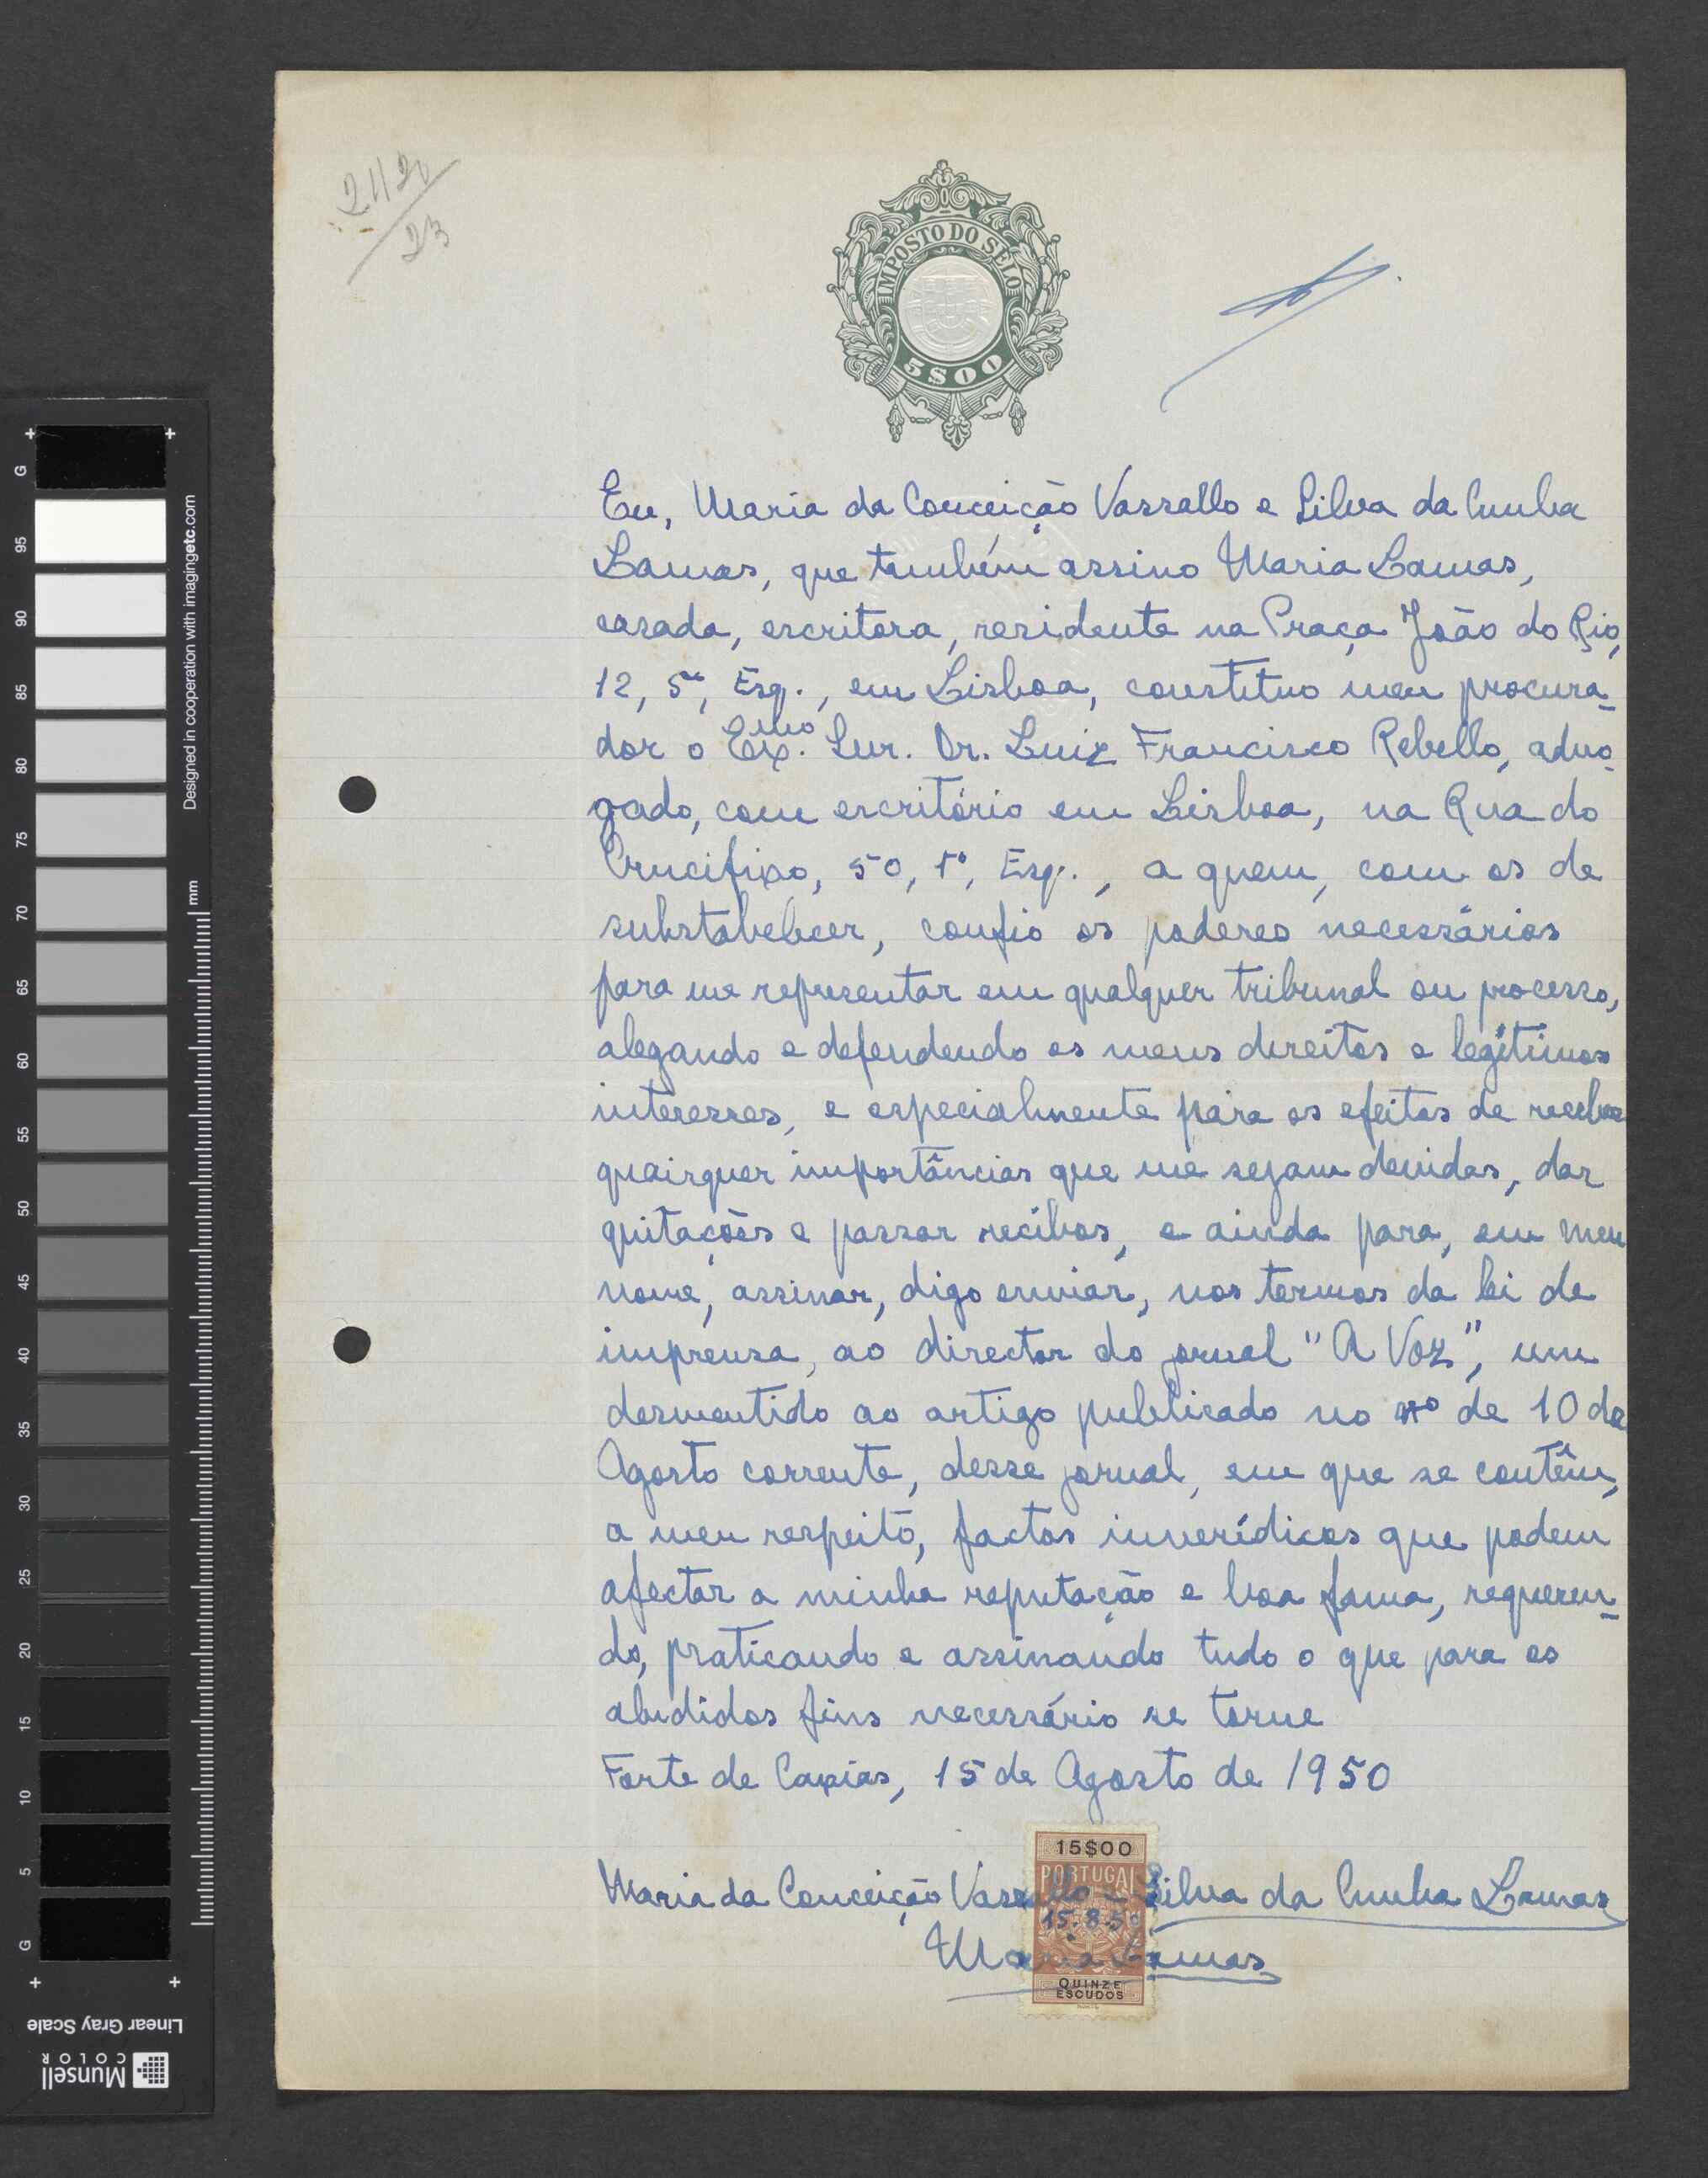 23
IMPOSTO DO SELO
5$00
Eu, Maria da Conceição Vassallo e Silva da Cunha
Lamas, que também assino Maria Lamas,
casada, escritora, residente na Praça João do Rio,
12, 5º, Esq., em Lisboa, constituo meu procura-
dor o Exmo. Snr. Dr. Luiz Francisco Rebello, advo-
gado, com escritório em Lisboa, na Rua do
Crucifixo, 50, 1º, Esq., a quem, com os de
substabelecer, confio os poderes necessários
para me representar em qualquer tribunal ou processo,
alegando e defendendo os meus direitos e legítimos
interesses, e especialmente para os efeitos de receber
quaisquer importâncias que me sejam devidas, dar
quitações e passar recibos, e ainda para, em meu
nome, assinar, digo enviar, nos termos da lei de
imprensa, ao director do jornal "A Voz", um
desmentido ao artigo publicado no nº de 10 de
Agosto corrente, desse jornal, em que se contêm,
a meu respeito, factos inverídicos que podem
afectar a minha reputação e boa fama, requeren-
do, praticando e assinando tudo o que para os
aludidos fins necessário se torne
Forte de Caxias, 15 de Agosto de 1950
15$00
PORTUGAL
Maria da Conceição Vassallo e Silva da Cunha Lamas
15.8.50
Maria Lamas
QUINZE
ESCUDOS
Designed in cooperation with imagingetc.com
mm
G 95 90 85 80 75 70 65 60 55 50 45 40 35 30 25 20 15 10 5 G
Linear Gray Scale
Munsell
COLOR